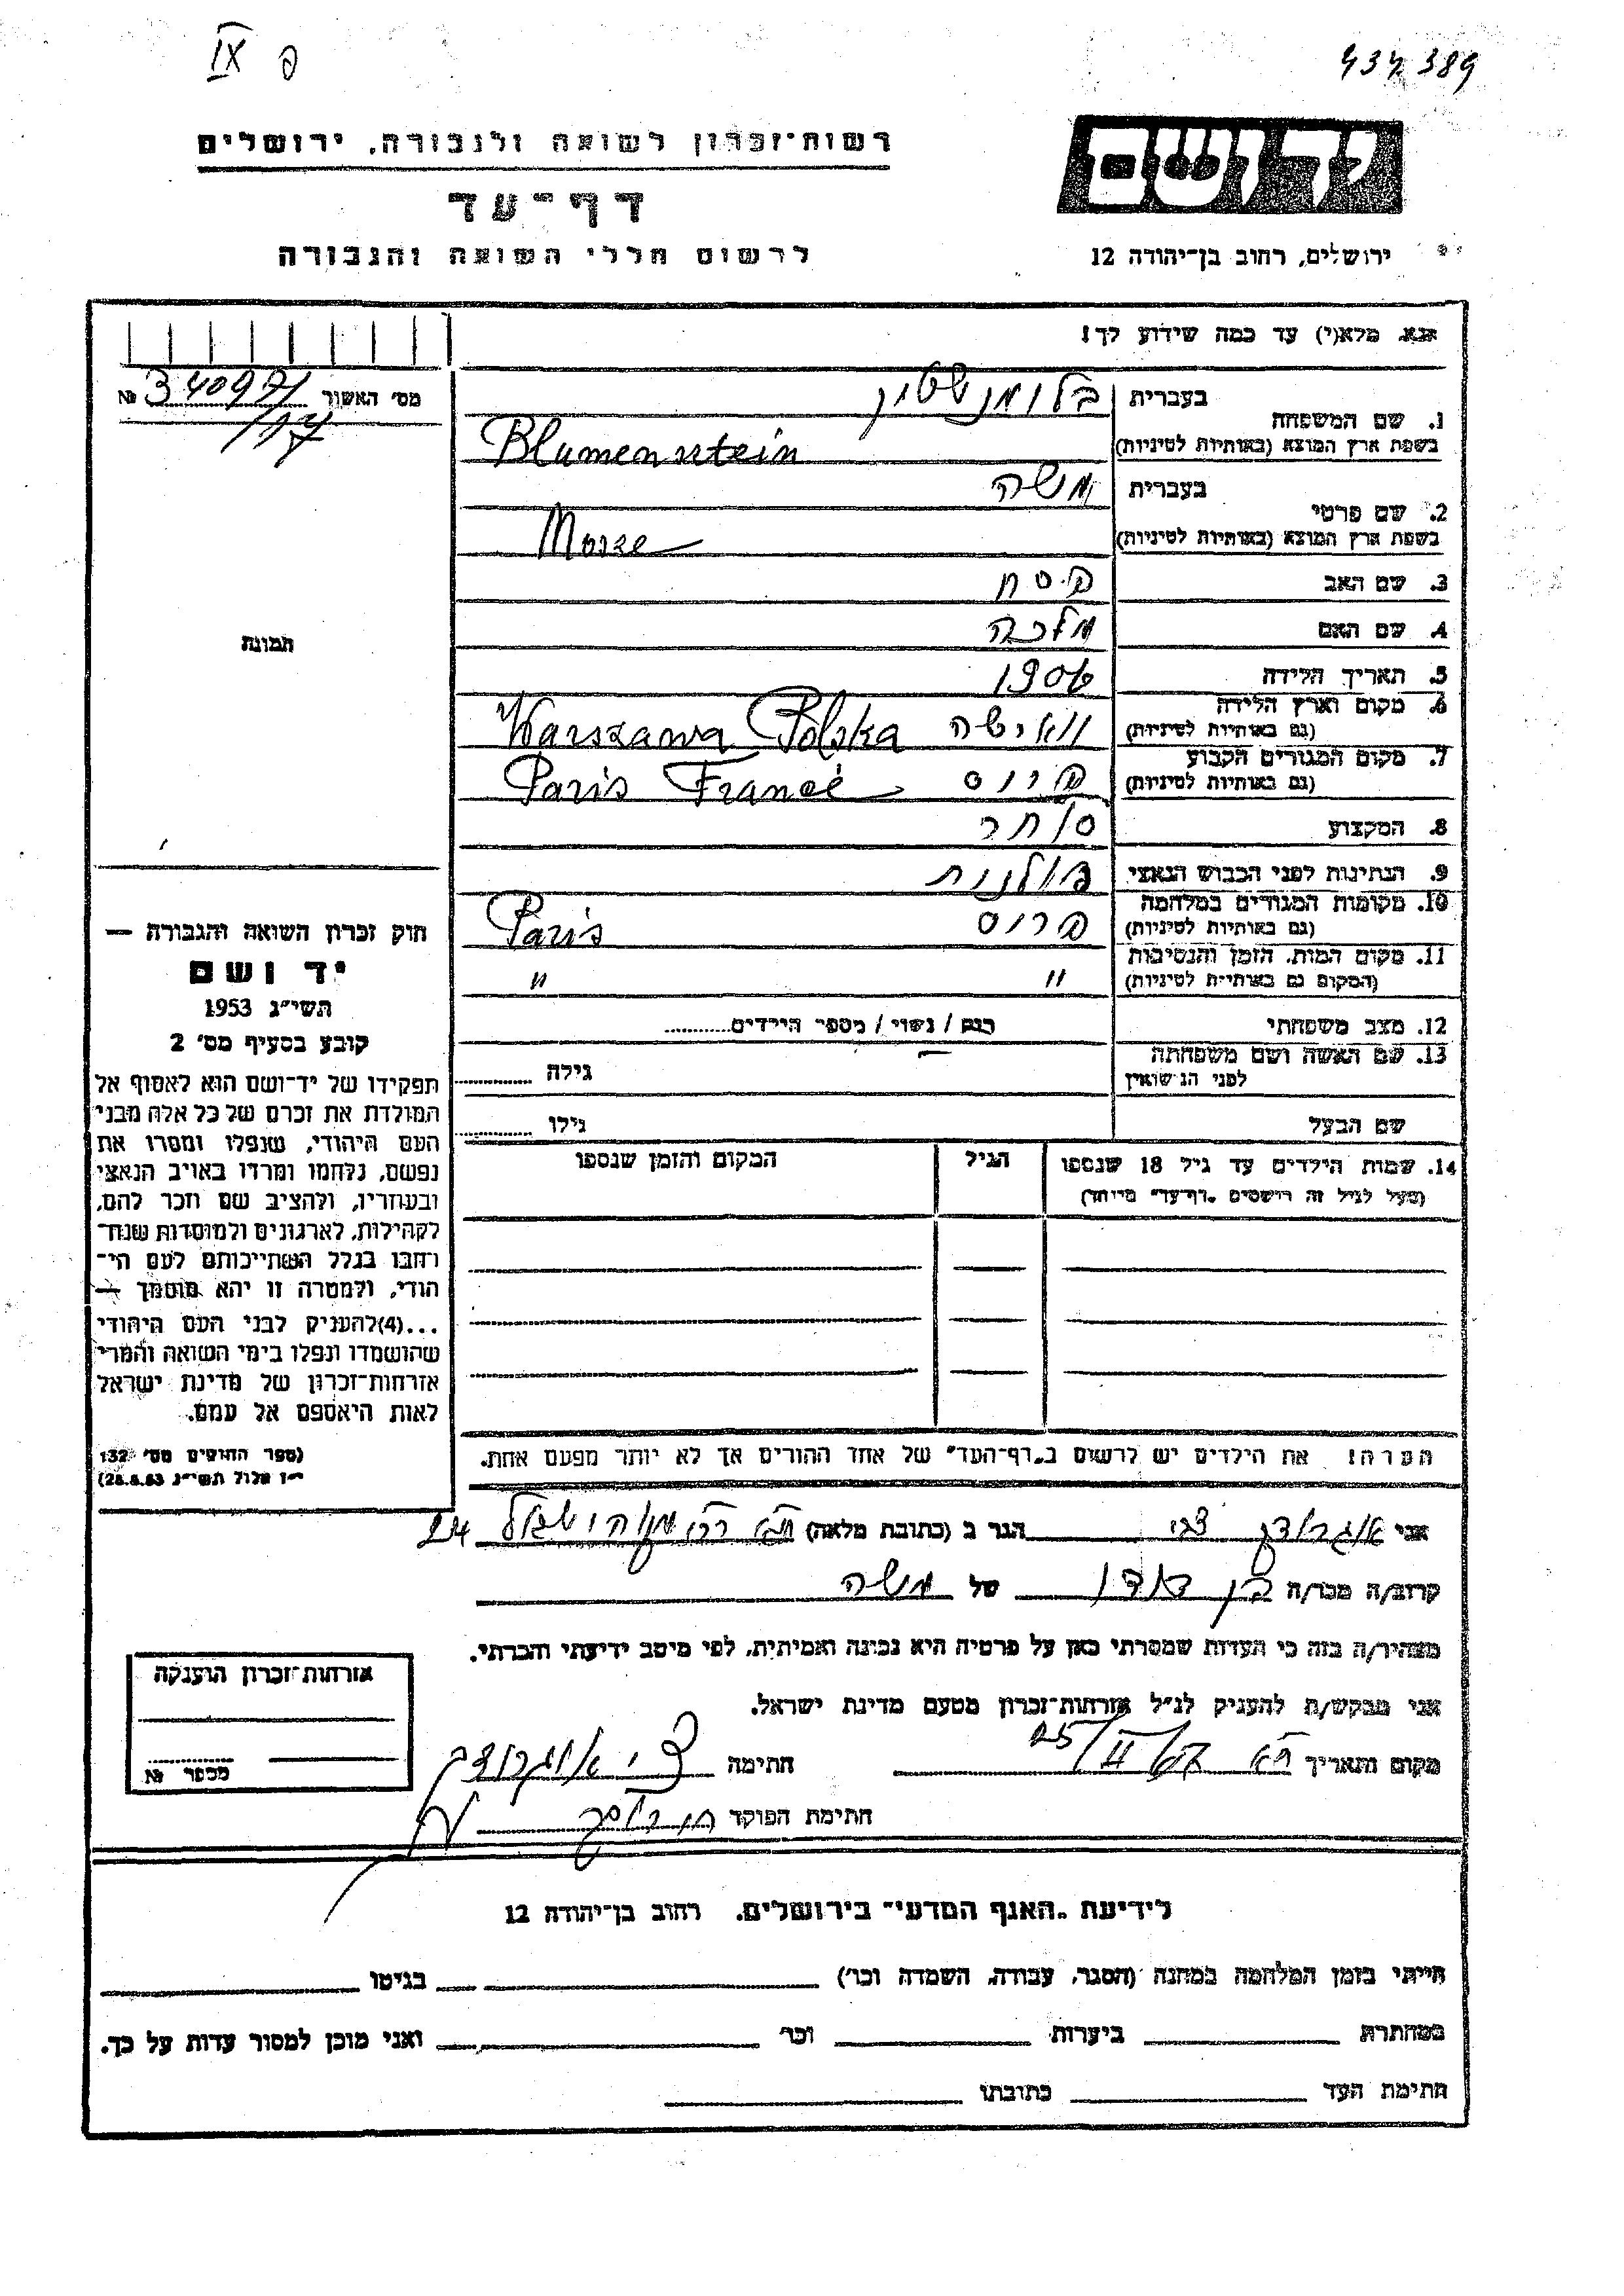 IX פ
434389
רשות־זכרון לשואה ולגבורה, ירושלים
דף־עד
לרשום חללי השואה והגבורה
יד ושם
ירושלים, רחוב בן־יהודה 12
אנא, מלא(י) עד כמה שידוע לך!
מס׳ האשור 340971 №
/17
1. שם המשפחה
בעברית בלומנשטין
בשפת ארץ המוצא (באותיות לטיניות) Blumennstein
2. שם פרטי
בעברית משה
בשפת ארץ המוצא (באותיות לטיניות) Mosze
3. שם האב פסח
4. שם האם מלכה
5. תאריך הלידה 1906
6. מקום וארץ הלידה
(גם באותיות לטיניות) Warszawa Polska
7. מקום המגורים הקבוע
(גם באותיות לטיניות) Paris France
8. המקצוע סוחר
9. הנתינות לפני הכבוש הנאצי פולנית
10. מקומות המגורים במלחמה
(גם באותיות לטיניות) פריס Paris
11. מקום המות, הזמן והנסיבות
(המקום גם באותיות לטיניות) " "
12. מצב משפחתי רוק / נשוי / מספר הילדים
13. שם האשה ושם משפחתה
לפני הנשואין גילה
שם הבעל גילו
14. שמות הילדים עד גיל 18 שנספו הגיל המקום והזמן שנספו
(מעל לגיל זה רושמים „דף־עד” מיוחד)
הערה: את הילדים יש לרשום ב„דף־העד” של אחד ההורים אך לא יותר מפעם אחת.
תמונה
חוק זכרון השואה והגבורה —
יד ושם
תשי״ג 1953
קובע בסעיף מס׳ 2
תפקידו של יד־ושם הוא לאסוף אל
המולדת את זכרם של כל אלה מבני
העם היהודי, שנפלו ומסרו את
נפשם, נלחמו ומרדו באויב הנאצי
ובעוזריו, ולהציב שם וזכר להם,
לקהילות, לארגונים ולמוסדות שנח־
רבו בגלל השתייכותם לעם הי־
הודי, ולמטרה זו יהא מוסמך —
...(4)להעניק לבני העם היהודי
שהושמדו ונפלו בימי השואה והמרי
אזרחות־זכרון של מדינת ישראל
לאות היאספם אל עמם.
(ספר החוקים מס׳ 132
י״ז אלול תשי״ג 28.8.53)
אני צבי הגר ב (כתובת מלאה) 24
קרוב/ה מכר/ה בן דודן של משה
מצהיר/ה בזה כי העדות שמסרתי כאן על פרטיה היא נכונה ואמיתית, לפי מיטב ידיעתי והכרתי.
אני מבקש/ת להעניק לנ״ל אזרחות־זכרון מטעם מדינת ישראל.
מקום ותאריך חתימה
חתימת הפוקד
אזרחות־זכרון הוענקה
מספר №
לידיעת „האגף המדעי” בירושלים, רחוב בן־יהודה 12
הייתי בזמן המלחמה במחנה (הסגר, עבודה, השמדה וכו׳) בגיטו
במחתרת ביערות וכו׳ ואני מוכן למסור עדות על כך.
חתימת העד כתובתו